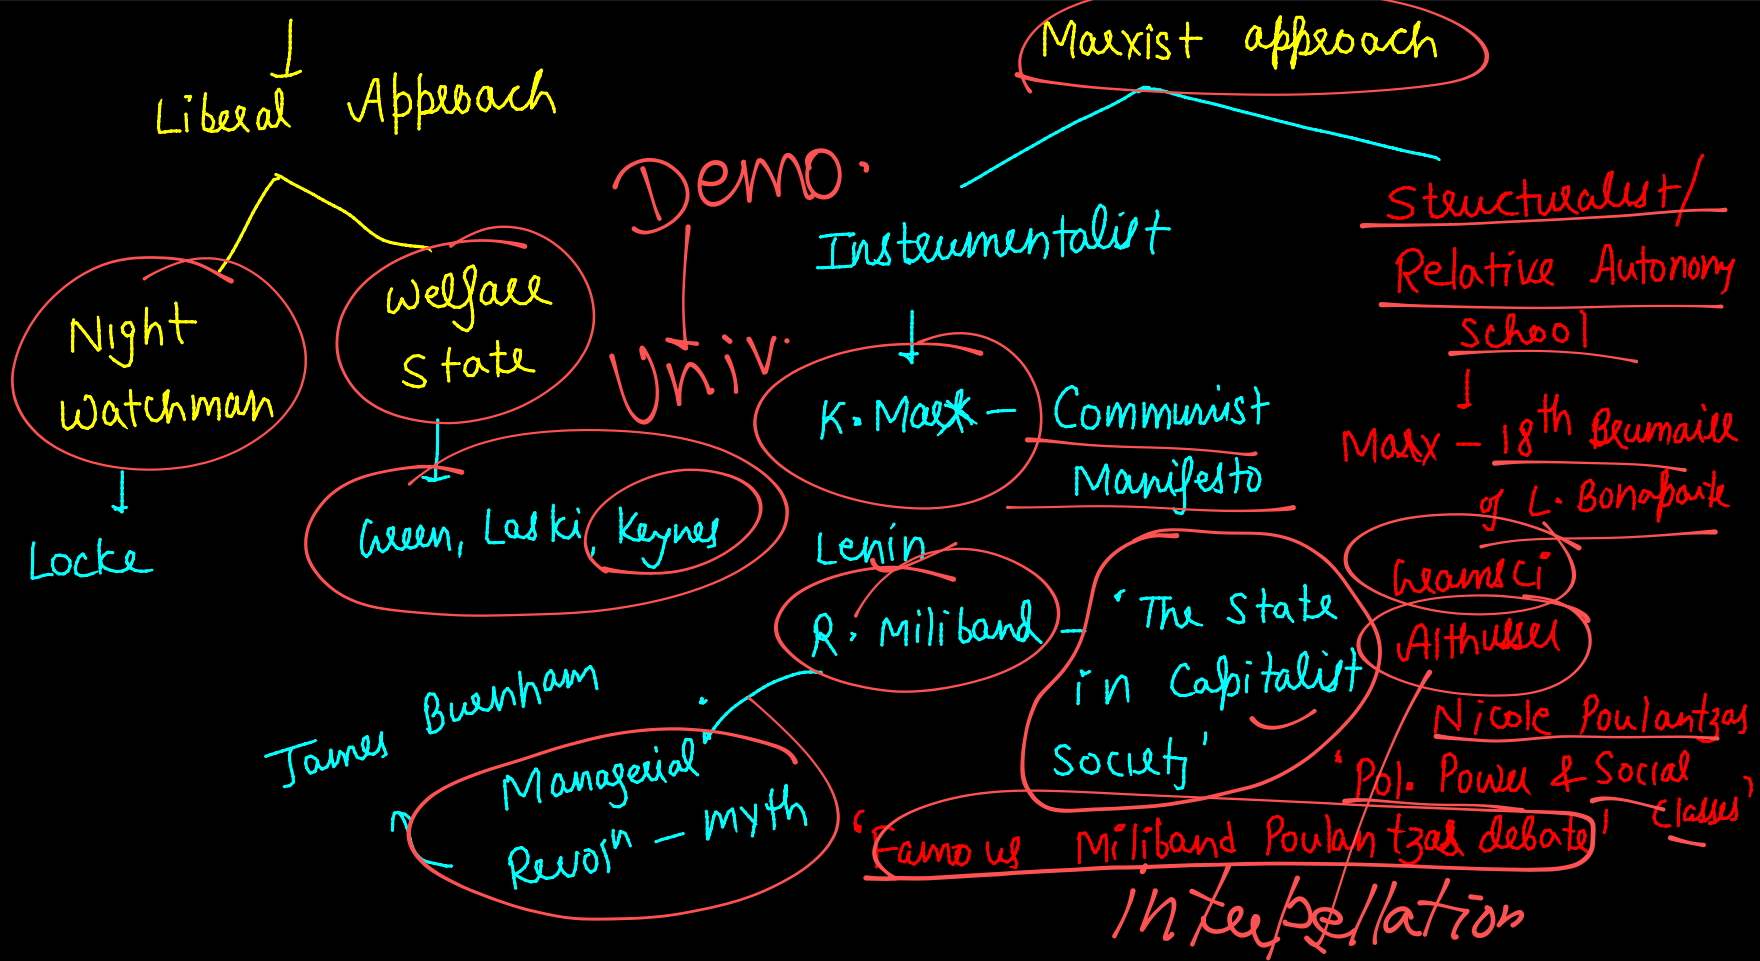 Liberal Approach
Night
Watchman
Locke
Welfare
State
Green, Laski, Keynes
Demo.
Univ.
Marxist approach
Instrumentalist
K. Marx – Communist
Manifesto
Lenin
R. Miliband – 'The State
in Capitalist
Society'
James Burnham
Managerial
Revolⁿ – myth
Structuralist/
Relative Autonomy
School
Marx – 18th Brumaire
of L. Bonaparte
Gramsci
Althusser
Nicole Poulantzas
'Pol. Power & Social
Classes'
'Famous Miliband Poulantzas debate'
Interpellation